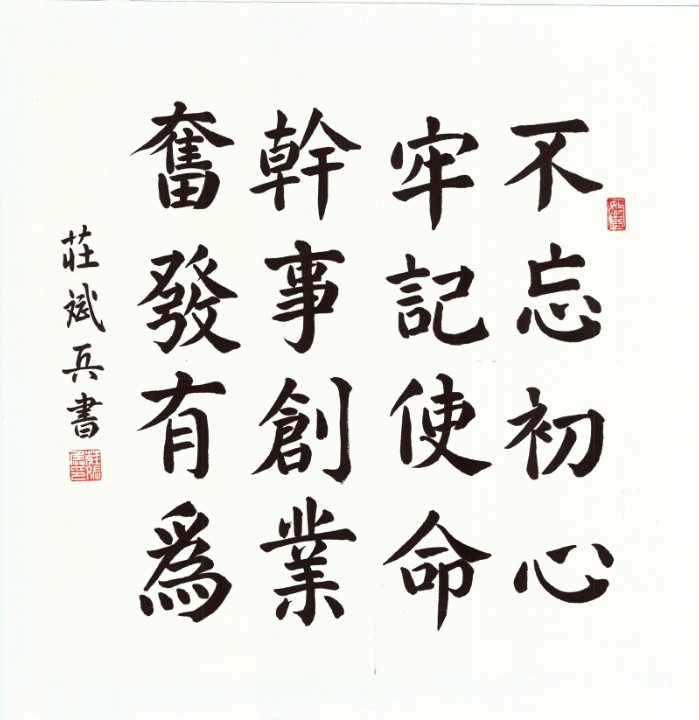 不忘初心
牢記使命
幹事創業
奮發有爲
莊斌兵書